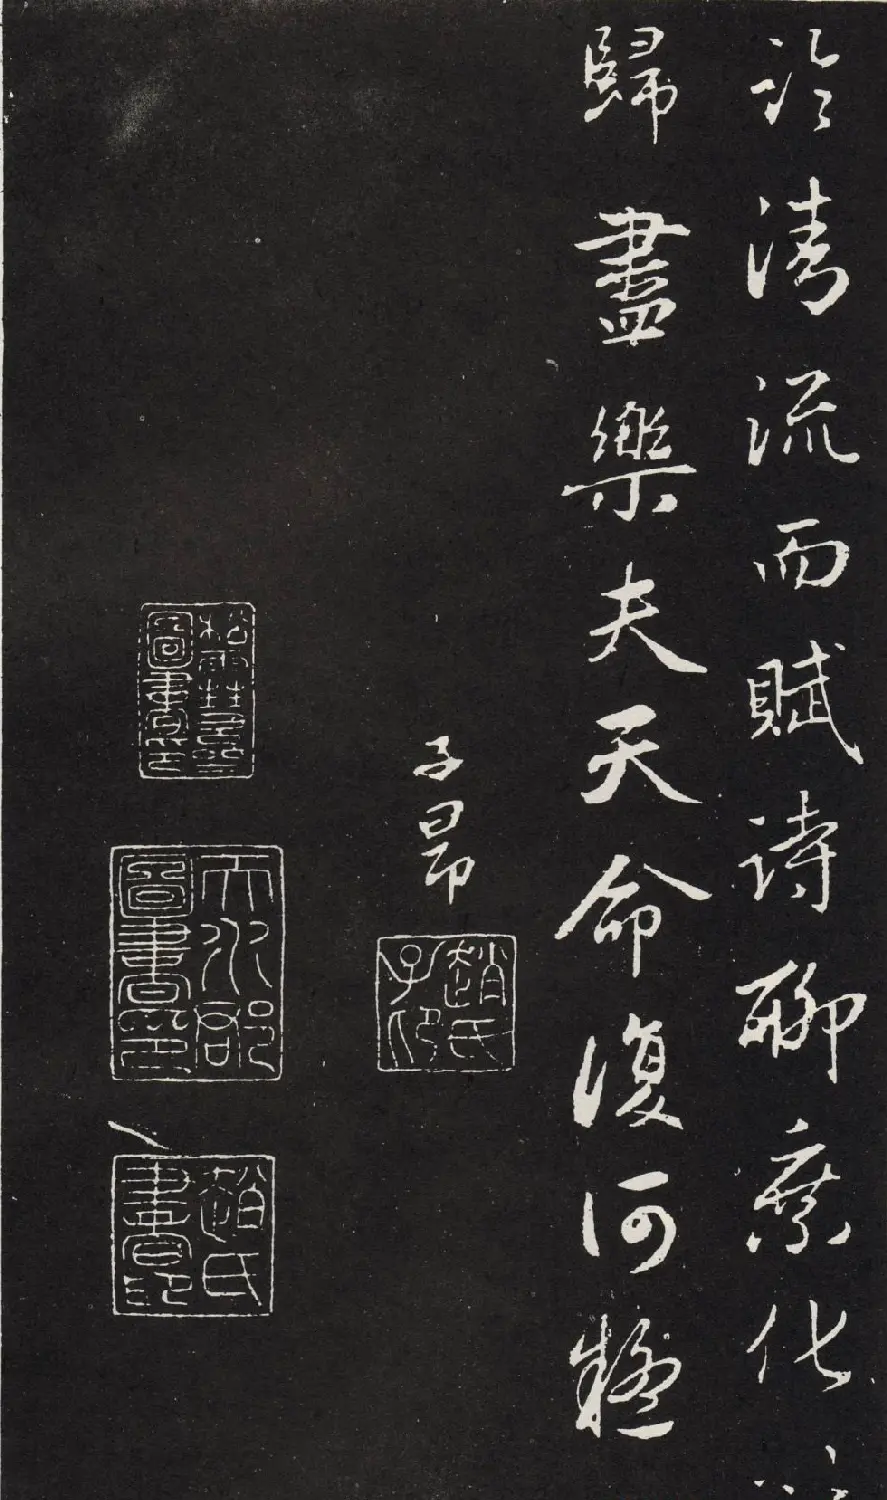 臨清流而賦詩聊乘化
歸盡樂夫天命復何疑
子昂
趙氏子昂
松雪齋圖書印
天水郡圖書印
趙氏書印